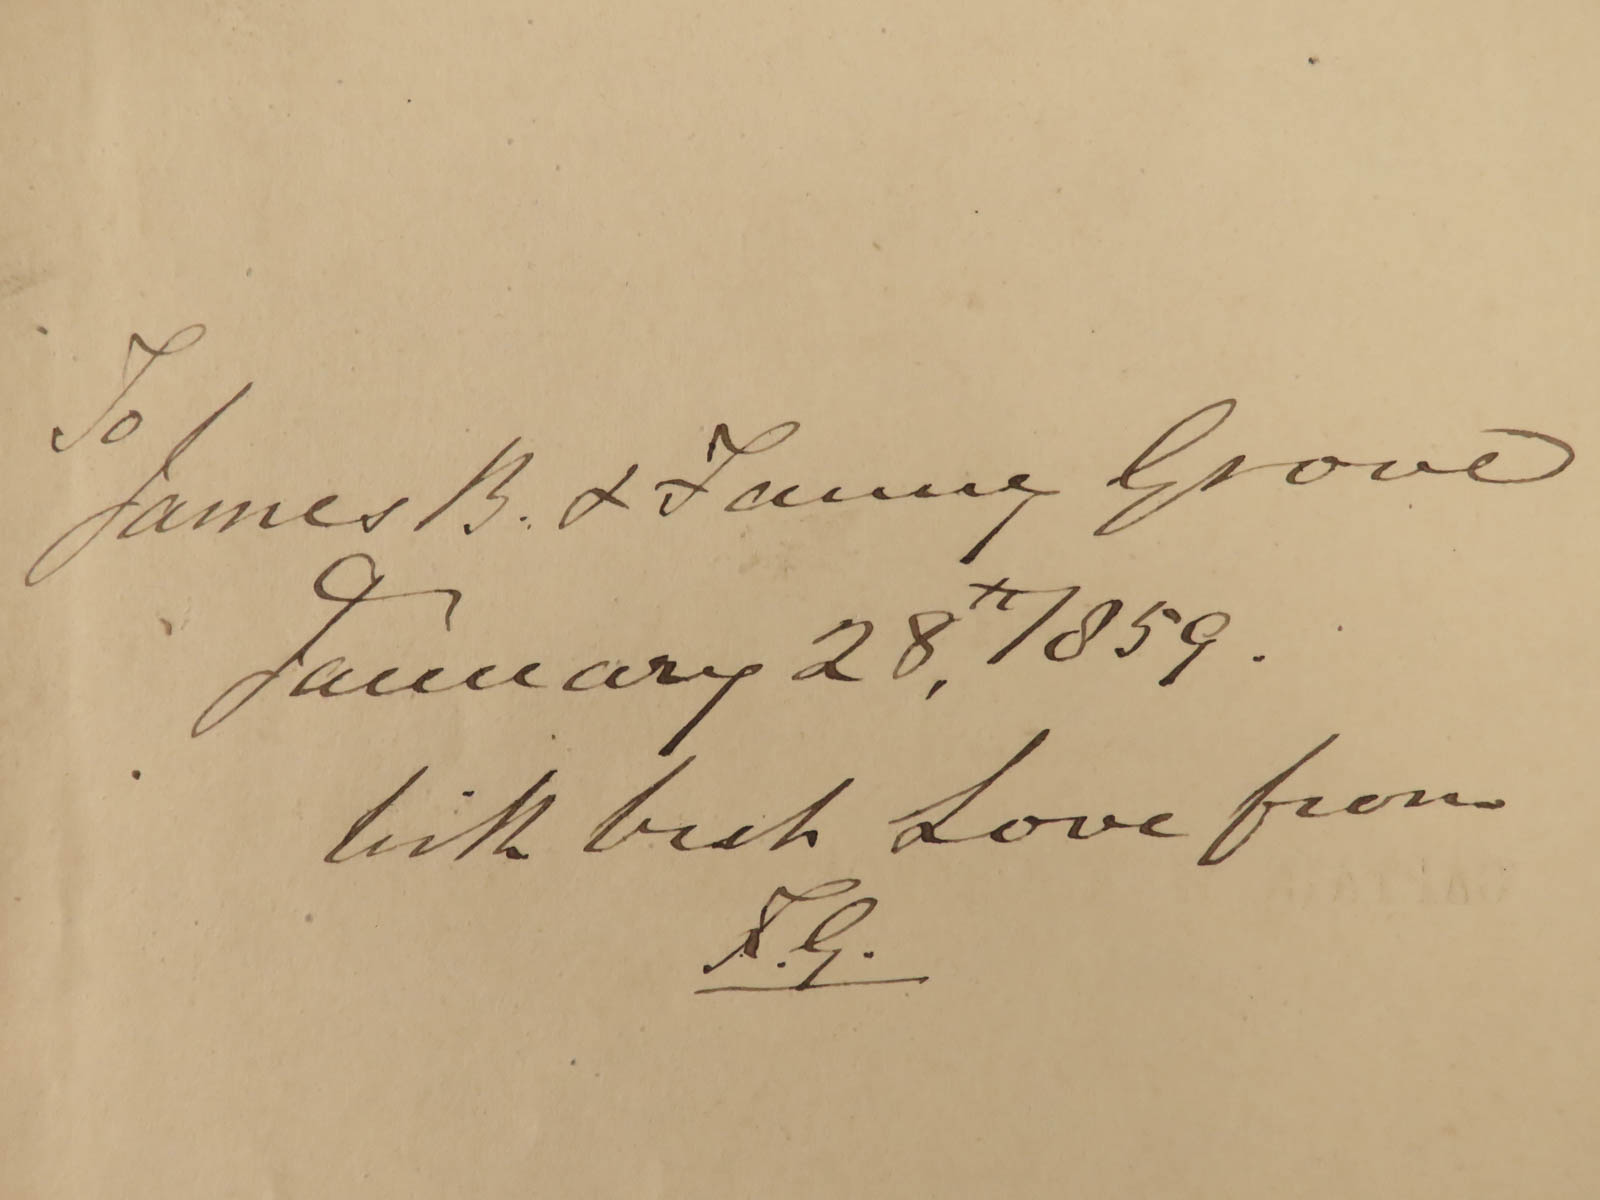 To
James B. & Fanny Grove
January 28,th/1859.
With best Love from
F.G.